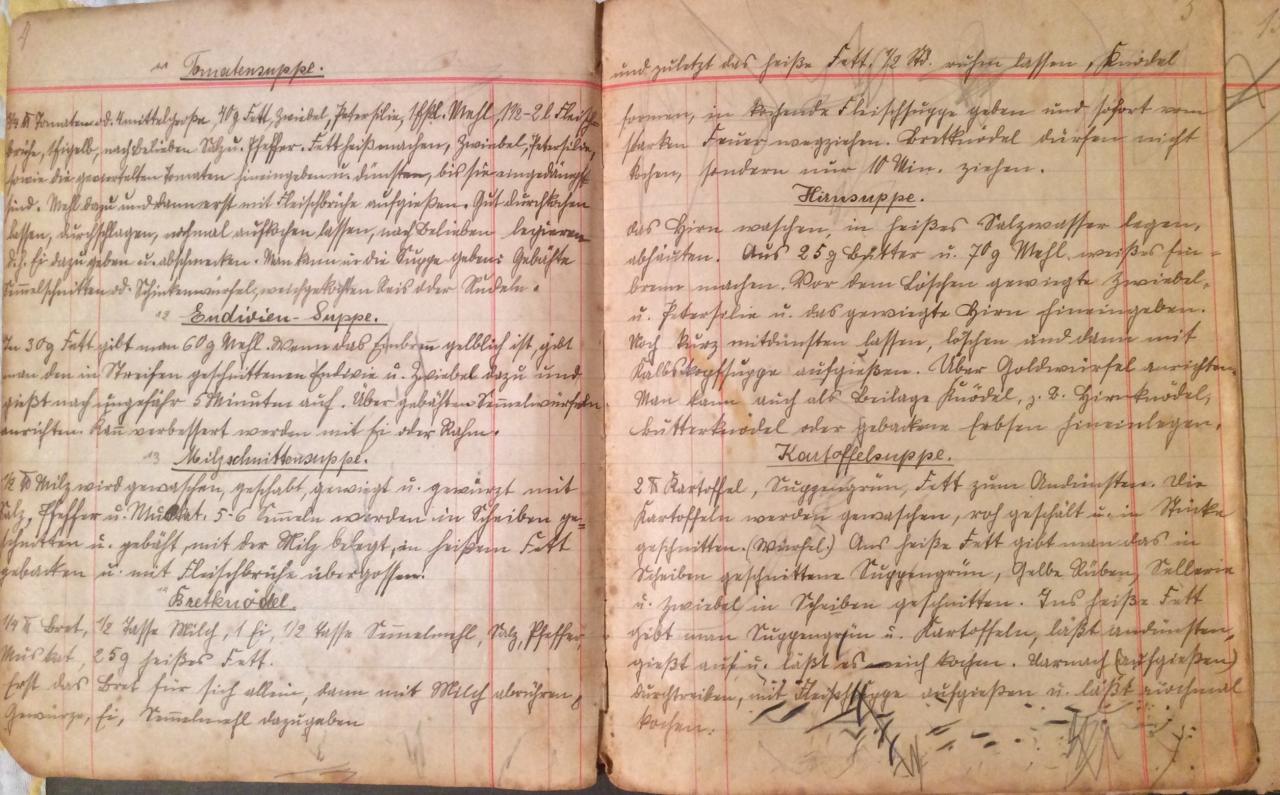 4
11 Tomatensuppe.
3/4 ℔ Tomaten od. 4 mittelgroße, 40 g Fett, Zwiebel, Petersilie, 1 Eßl. Mehl, 1 1/2-2 l Fleisch-
brühe, 1 Eigelb, nach Belieben Salz u. Pfeffer. Fett heißmachen, Zwiebel, Petersilie,
sowie die gewürfelten Tomaten hineingeben u. dünsten, bis sie eingedämpft
sind. Mehl dazu und dann erst mit Fleischbrühe aufgießen. Gut durchkochen
lassen, durchschlagen, nochmal aufkochen lassen, nach Belieben legieren
d. h. Ei dazu geben u. abschmecken. Man kann in die Suppe geben: Gebähte
Semmelschnitten od. Schinkenwürfel, weichgekochten Reis oder Nudeln.
12 Endivien-Suppe.
In 30 g Fett gibt man 60 g Mehl. Wenn das Einbrenn gelblich ist, gibt
man den in Streifen geschnittenen Endivie u. Zwiebel dazu und
gießt nach ungefähr 5 Minuten auf. Über gebähten Semmelwürfeln
anrichten. Kann verbessert werden mit Ei oder Rahm.
13 Milzschnittensuppe.
1/2 ℔ Milz wird gewaschen, geschabt, gewiegt u. gewürzt mit
Salz, Pfeffer u. Muskat. 5-6 Semmeln werden in Scheiben ge-
schnitten u. gebäht, mit der Milz belegt, in heißem Fett
gebacken u. mit Fleischbrühe übergossen.
Bretknödel.
1/4 ℔ Bret, 1/2 Tasse Milch, 1 Ei, 1/2 Tasse Semmelmehl, Salz, Pfeffer,
Muskat, 25 g heißes Fett.
Erst das Bret für sich allein, dann mit Milch abrühren,
Gewürze, Ei, Semmelmehl dazugeben
5
und zuletzt das heiße Fett. 1/2 Std. ruhen lassen, Knödel
formen, in kochende Fleischsuppe geben und sofort vom
starken Feuer wegziehen. Bretknödel dürfen nicht
kochen, sondern nur 10 Min. ziehen.
Hirnsuppe.
Das Hirn waschen, in heißes Salzwasser legen,
abhäuten. Aus 25 g Butter u. 70 g Mehl weißes Ein-
brenn machen. Vor dem Löschen gewiegte Zwiebel-
u. Petersilie u. das gewiegte Hirn hineingeben.
Noch kurz mitdünsten lassen, löschen und dann mit
Kalbskopfsuppe aufgießen. Über Goldwürfel anrichten.
Man kann auch als Beilage Knödel, z. B. Hirnknödel,
Butterknödel oder gebackene Erbsen hineinlegen.
Kartoffelsuppe.
2 ℔ Kartoffel, Suppengrün, Fett zum Andünsten. Die
Kartoffeln werden gewaschen, roh geschält u. in Stücke
geschnitten. (Würfel.) Ins heiße Fett gibt man das in
Scheiben geschnittene Suppengrün, Gelbe Rüben, Sellerie
u. Zwiebel in Scheiben geschnitten. Ins heiße Fett
gibt man Suppengrün u. Kartoffeln, läßt andünsten,
gießt auf u. läßt es weich kochen. Darnach (aufgießen)
durchtreiben, mit Fleischsuppe aufgießen u. läßt nochmal
kochen.